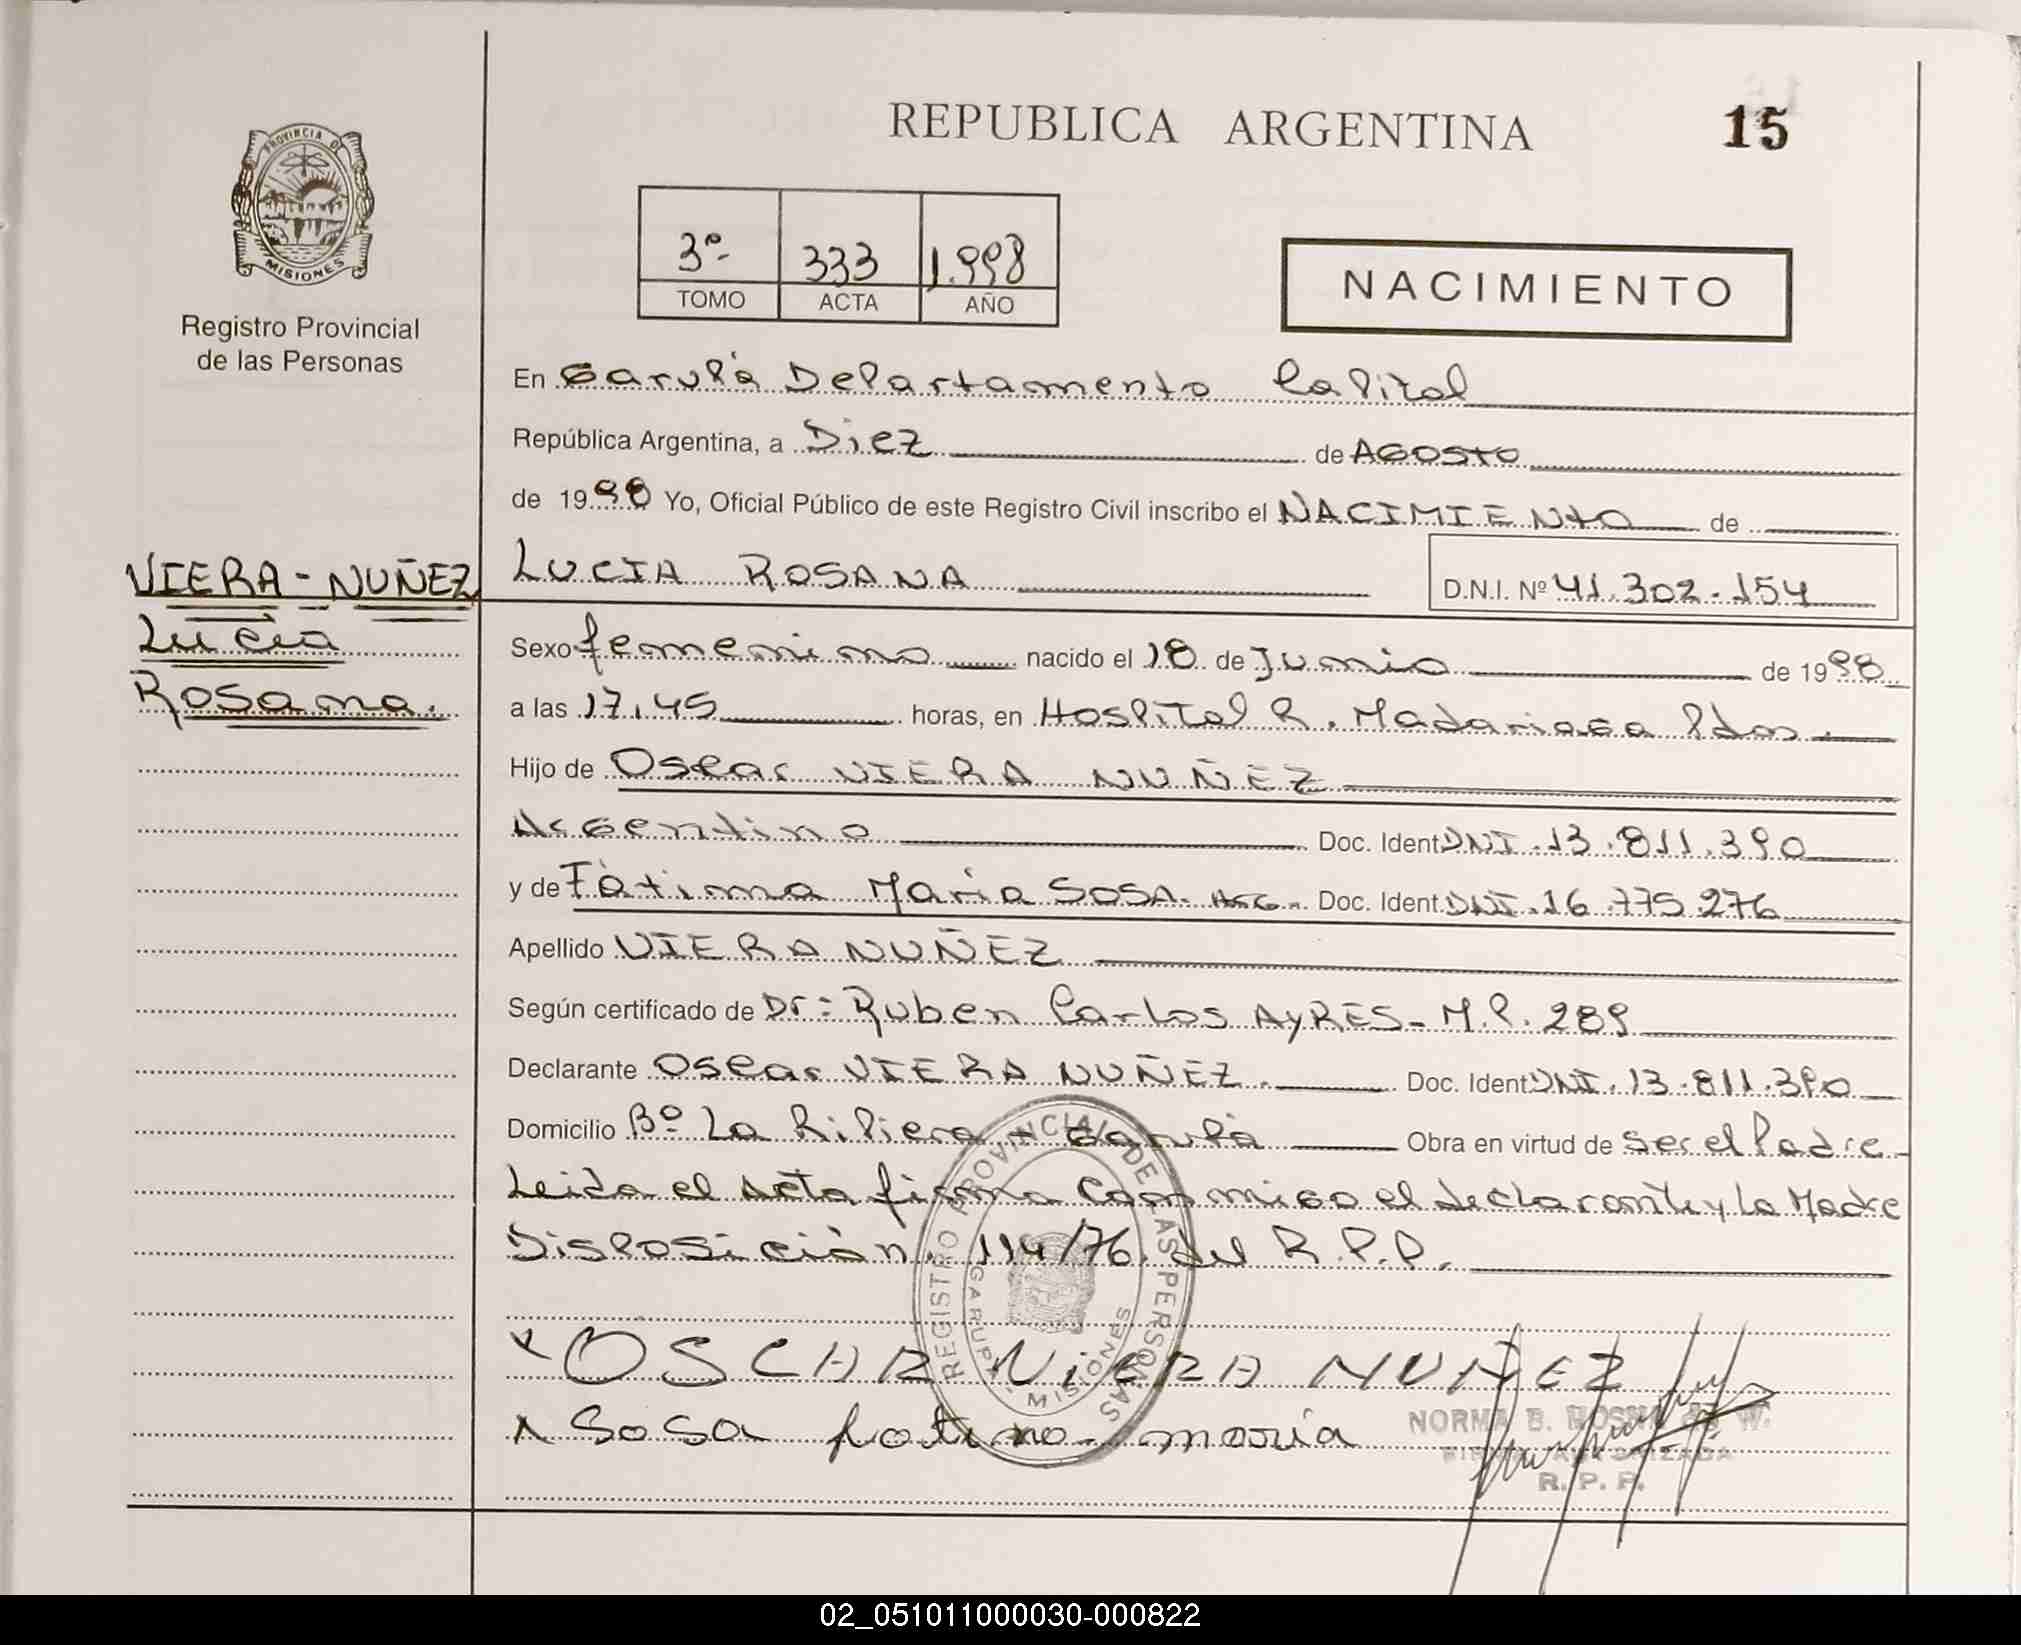 REPUBLICA ARGENTINA
15
PROVINCIA DE
MISIONES
Registro Provincial
de las Personas
3º 333 1.998
TOMO ACTA AÑO
NACIMIENTO
En Garupá Departamento Capital
República Argentina, a Diez de AGOSTO
de 1998 Yo, Oficial Público de este Registro Civil inscribo el NACIMIENTO de
VIERA - NUÑEZ
Lucia
Rosana.
LUCIA ROSANA
D.N.I. Nº 41.302.154
Sexo femenino nacido el 18 de Junio de 1998
a las 17,45 horas, en Hospital R. Madariaga Pdas.
Hijo de Oscar VIERA NUÑEZ
Argentino Doc. Ident DNI. 13.811.390
y de Fàtima Maria SOSA. Arg. Doc. Ident DNI. 16.775.276
Apellido VIERA NUÑEZ
Según certificado de Dr: Ruben Carlos AYRES - M.P. 289
Declarante Oscar VIERA NUÑEZ. Doc. Ident DNI. 13.811.390
Domicilio Bº La Ribiera - Garupà Obra en virtud de ser el Padre
Leida el Acta firma conmigo el declarante y La Madre
Disposición. 114/76. del R.P.P.
REGISTRO PROVINCIAL DE LAS PERSONAS
GARUPA - MISIONES
OSCAR ViERA NUÑEZ
Sosa fatima maria
NORMA B. W.
FIRMA AUTORIZADA
R. P. P.
02_051011000030-000822